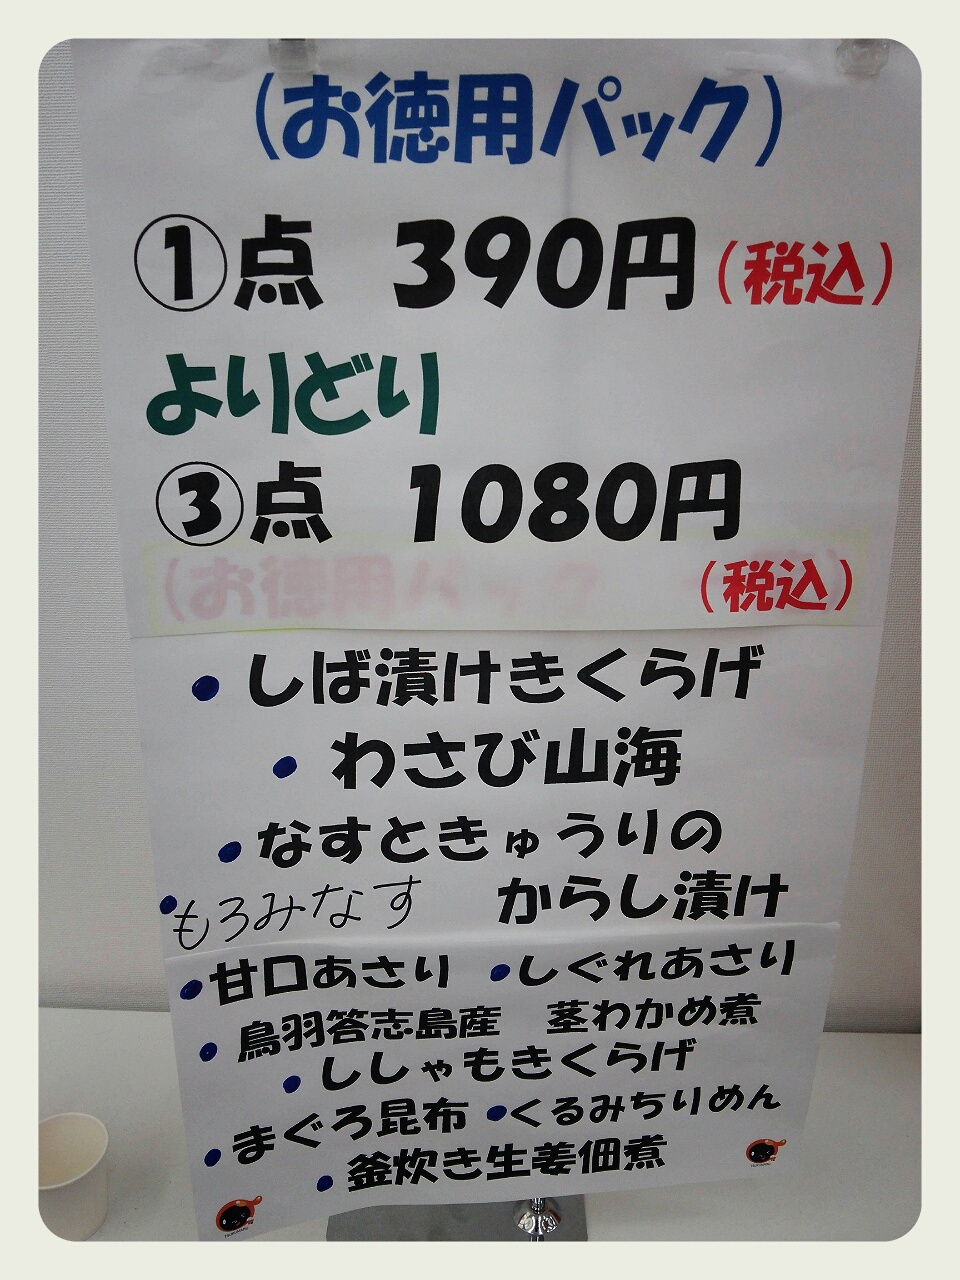 (お徳用パック)
①点 390円(税込)
よりどり
③点 1080円
(税込)
(お徳用パック
• しば漬けきくらげ
• わさび山海
• なすときゅうりの
からし漬け
• もろみなす
• 甘口あさり • しぐれあさり
• 鳥羽答志島産 茎わかめ煮
• ししゃもきくらげ
• まぐろ昆布 • くるみちりめん
• 釜炊き生姜佃煮